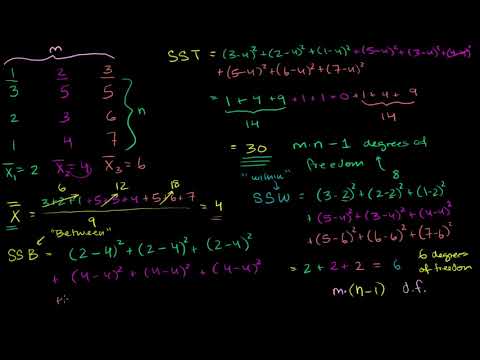 m
1 2 3
3 5 5
2 3 6
1 4 7
n
X̄₁ = 2 X̄₂ = 4 X̄₃ = 6
6 12 18
X̿ = 3+2+1+5+3+4+5+6+7 / 9 = 4
SSB = (2-4)² + (2-4)² + (2-4)²
"Between"
+ (4-4)² + (4-4)² + (4-4)²
SST = (3-4)² + (2-4)² + (1-4)² + (5-4)² + (3-4)² + (4-4)²
+ (5-4)² + (6-4)² + (7-4)²
= 1 + 4 + 9 + 1 + 1 + 0 + 1 + 4 + 9
14 14
= 30 m·n - 1 degrees of
freedom
8
"within"
SSW = (3-2)² + (2-2)² + (1-2)²
+ (5-4)² + (3-4)² + (4-4)²
+ (5-6)² + (6-6)² + (7-6)²
= 2 + 2 + 2 = 6 6 degrees
of freedom
m·(n-1) d.f.